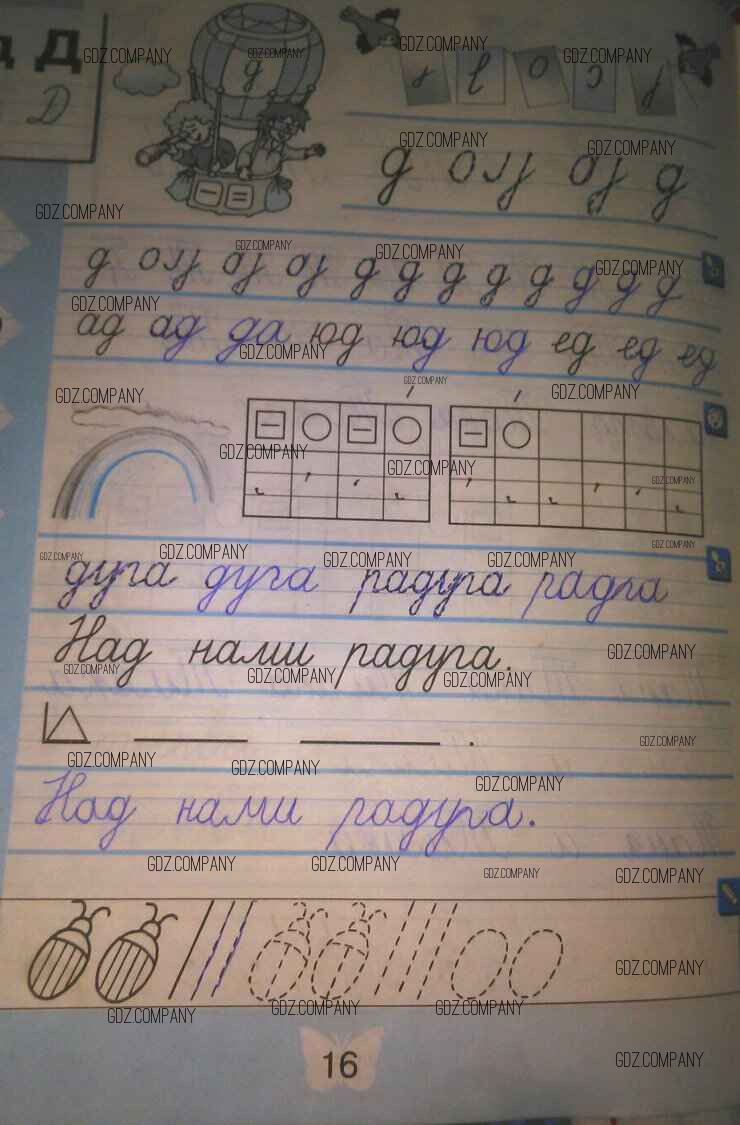 Д
Д
д
д д д д д д д д
ад ад да юд юд юд ед ед ед
дуга дуга радуга радга
Над нами радуга.
Над нами радуга.
16
GDZ.COMPANY